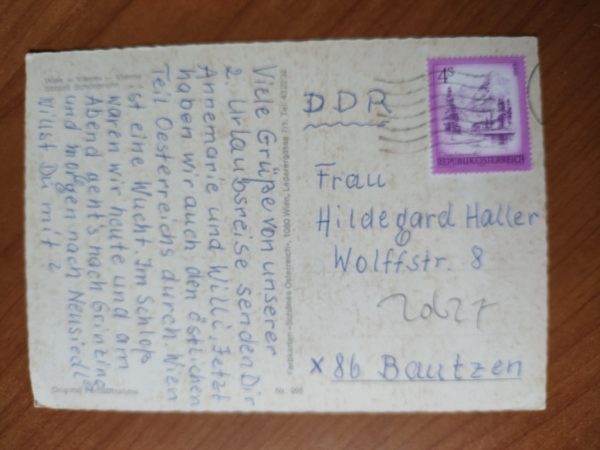 Wien - Vienna - Vienne
Schloß Schönbrunn
Viele Grüße von unserer
2. Urlaubsreise senden Dir
Annemarie und Willi. Jetzt
haben wir auch den östlichen
Teil Oesterreichs durch. Wien
ist eine Wucht. Im Schloß
waren wir heute und am
Abend geht's nach Grinzing
und morgen nach Neusiedl.
Willst Du mit?
1080 Wien, Lederergasse 7/1, Tel.
Nr.
4S
REPUBLIK ÖSTERREICH
DDR
Frau
Hildegard Haller
Wolffstr. 8
x 86 Bautzen